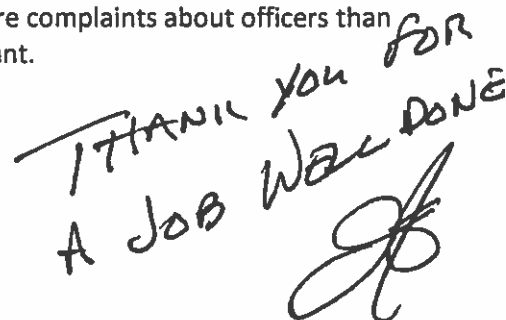 re complaints about officers than
nt.
THANK YOU FOR
A JOB WELL DONE